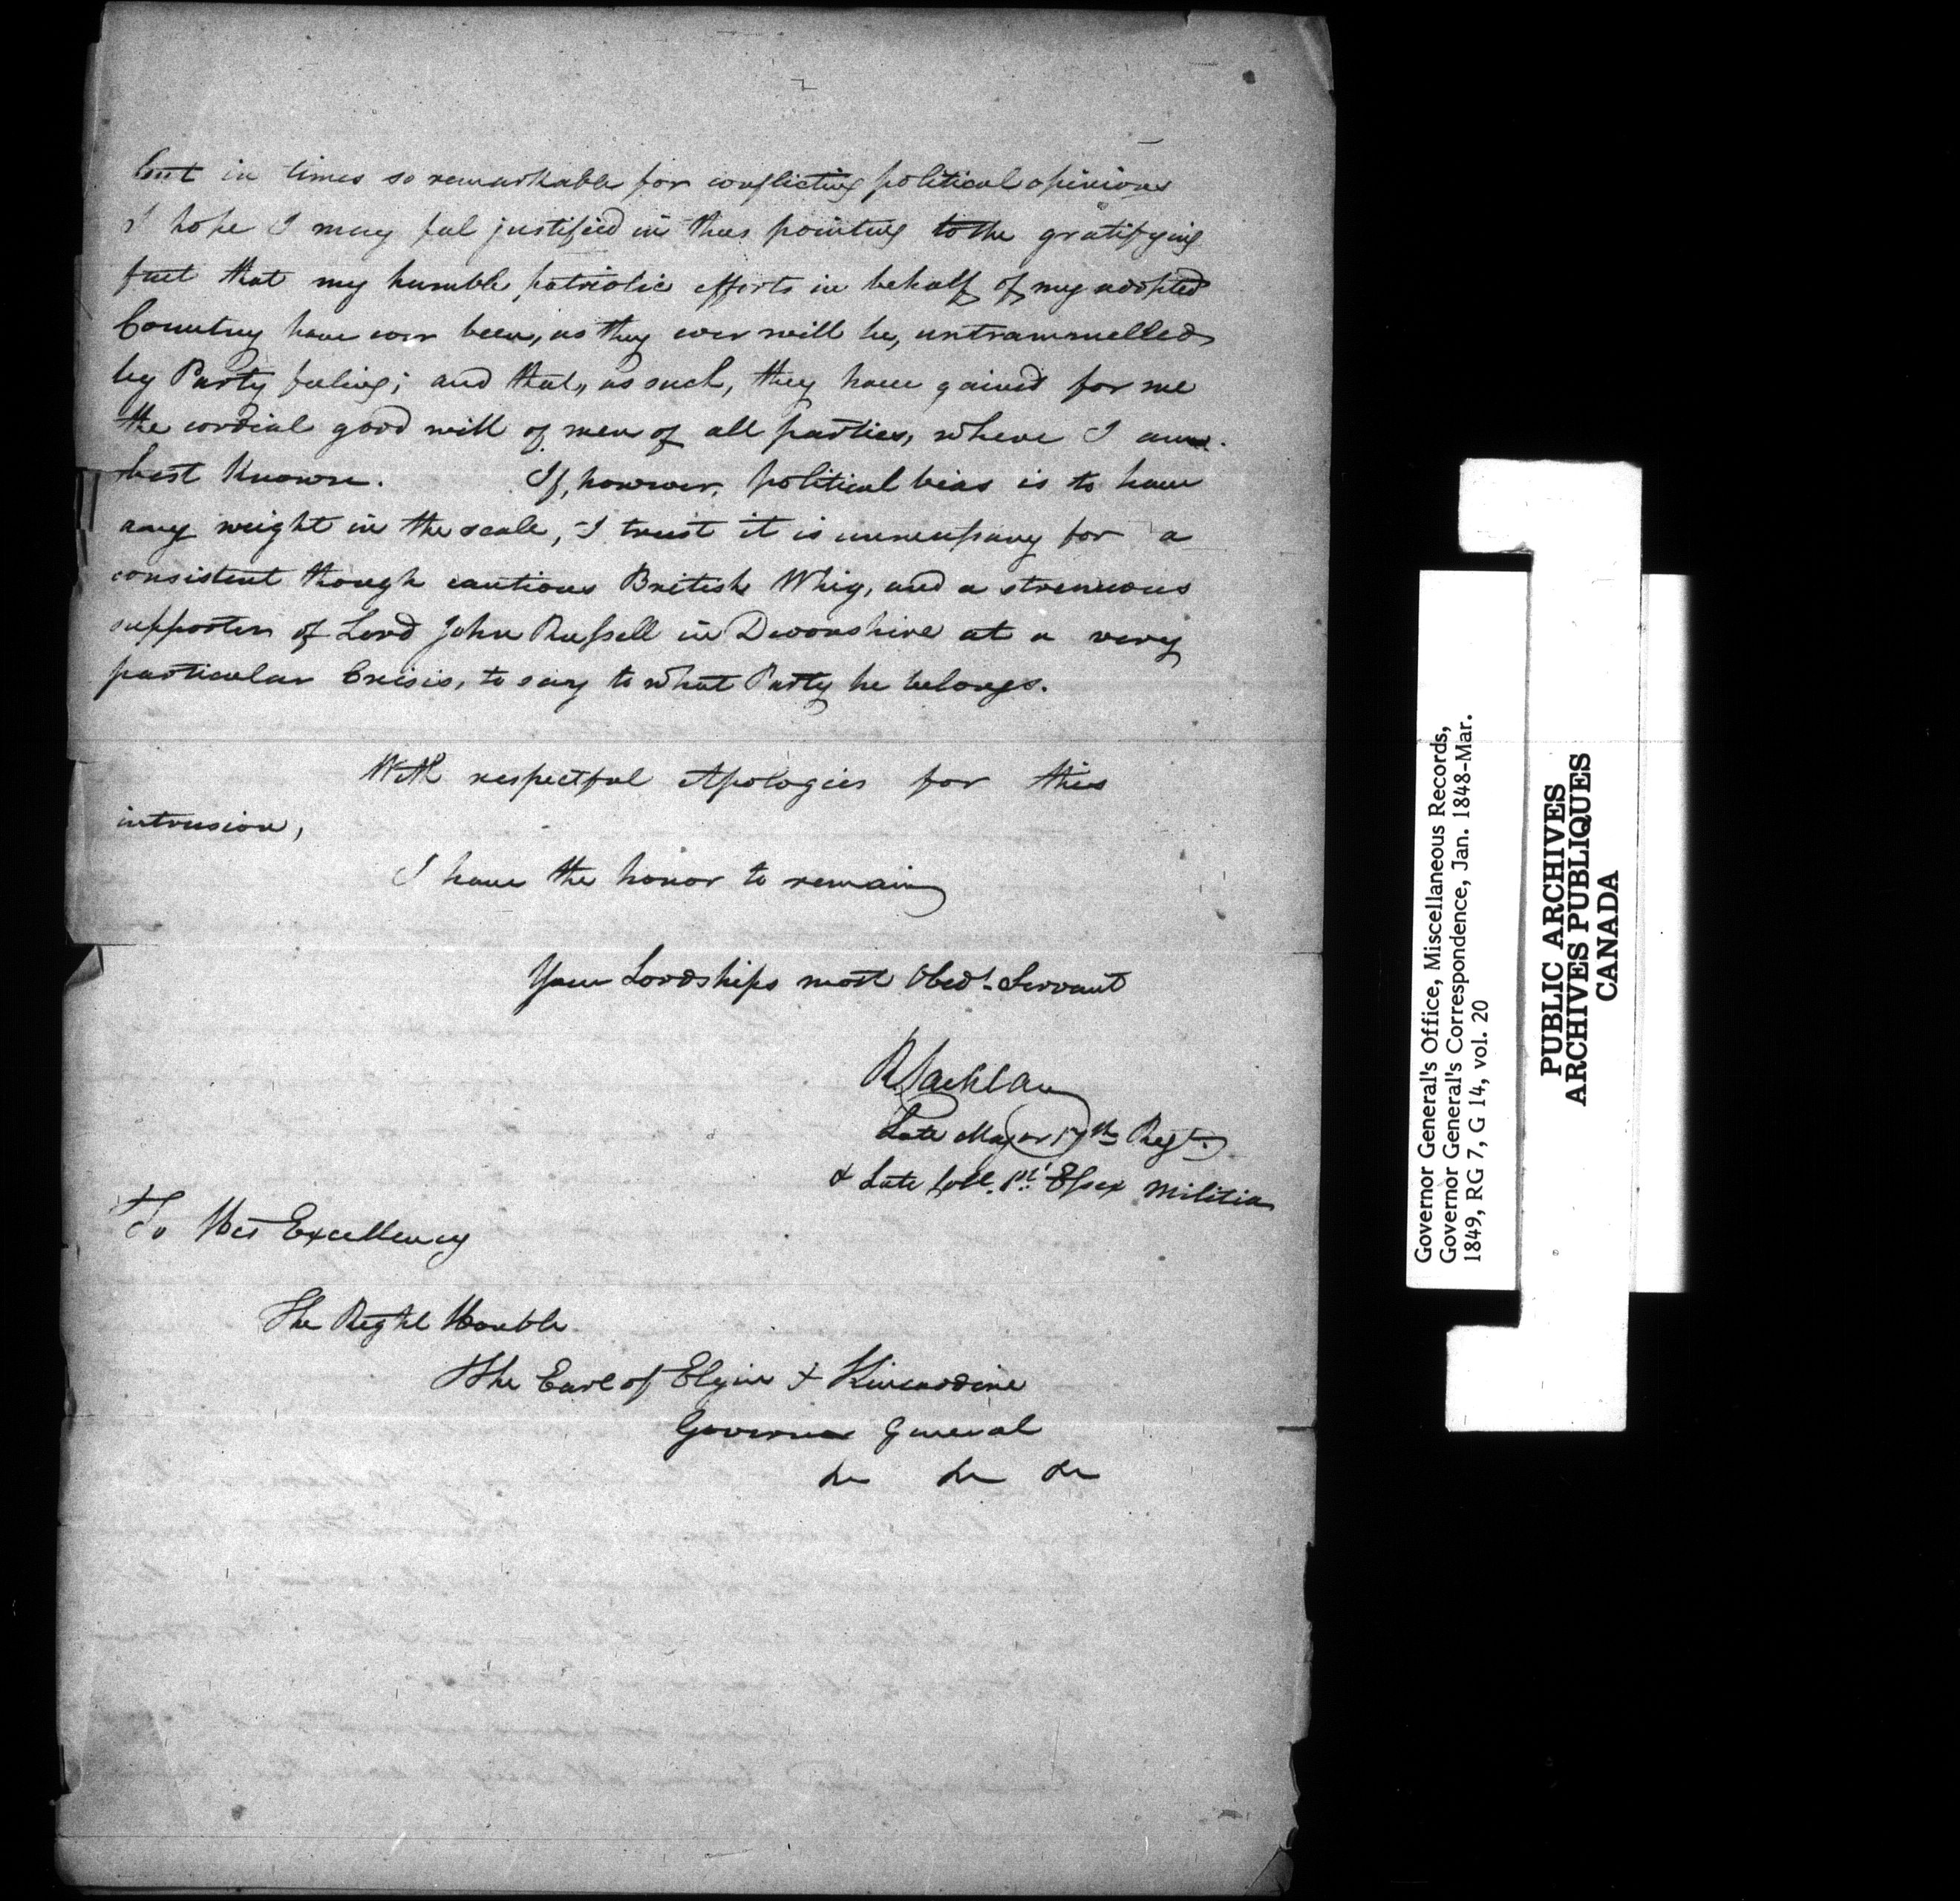 but in times so remarkable for conflicting political opinions
I hope I may feel justified in thus pointing to the gratifying
fact that my humble patriotic efforts in behalf of my adopted
Country have ever been, as they ever will be, untrammelled
by Party feeling; and that, as such, they have gained for me
the cordial good will of men of all parties, where I am
best known. If, however, political bias is to have
any weight in the scale, I trust it is unnecessary for a
consistent though cautious British Whig, and a strenuous
supporter of Lord John Russell in Devonshire at a very
particular Crisis, to say to what Party he belongs.
With respectful Apologies for this
intrusion,
I have the honor to remain
Your Lordships most Obedt. Servant
R Lachlan
Late Major 17th Regt.
& Late Coll. 1st Essex Militia
To His Excellency
The Right Honble
The Earl of Elgin & Kincardine
Governor General
&c &c &c
Governor General's Office, Miscellaneous Records,
Governor General's Correspondence, Jan. 1848-Mar.
1849, RG 7, G 14, vol. 20
PUBLIC ARCHIVES
ARCHIVES PUBLIQUES
CANADA